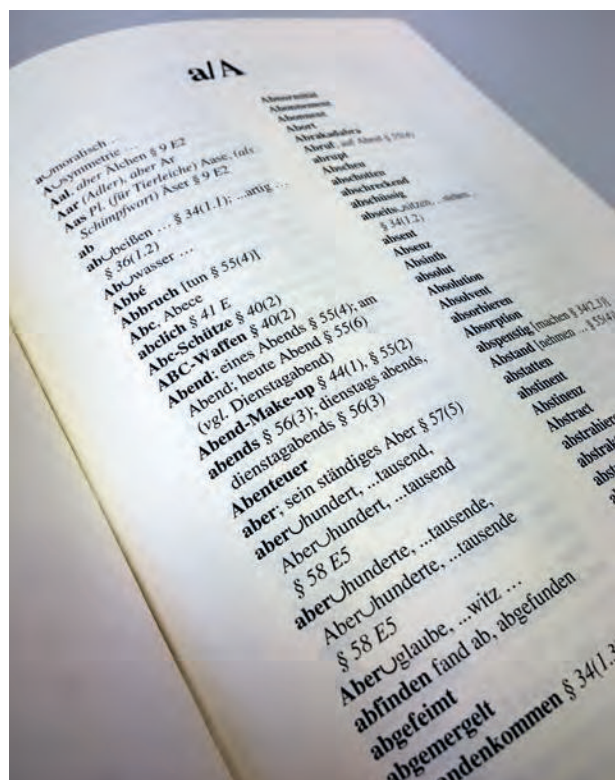 a/A
a◡moralisch ...
A◡symmetrie ...
Aal, aber Älchen § 9 E2
Aar (Adler), aber Ar
Aas Pl. (für Tierleiche) Aase, (als
Schimpfwort) Äser § 9 E2
ab
ab◡beißen ... § 34(1.1); ...artig ...
§ 36(1.2)
Ab◡wasser ...
Abbé
Abbruch [tun § 55(4)]
Abc, Abece
abelich § 41 E
Abc-Schütze § 40(2)
ABC-Waffen § 40(2)
Abend; eines Abends § 55(4); am
Abend; heute Abend § 55(6)
(vgl. Dienstagabend)
Abend-Make-up § 44(1), § 55(2)
abends § 56(3); dienstags abends,
dienstagabends § 56(3)
Abenteuer
aber; sein ständiges Aber § 57(5)
aber◡hundert, ...tausend,
Aber◡hundert, ...tausend
§ 58 E5
aber◡hunderte, ...tausende,
Aber◡hunderte, ...tausende
§ 58 E5
Aber◡glaube, ...witz ...
abfinden fand ab, abgefunden
abgefeimt
abgemergelt
andenkommen § 34(1.3
Abnormität
Abonnement
Abonnent
Abort
Abrakadabra
Abruf, auf Abruf § 55(4)
abrupt
Abscheu
abschotten
abschreckend
abschüssig
abseits◡sitzen, ...stehen
§ 34(1.2)
absent
Absenz
Absinth
absolut
Absolution
Absolvent
absorbieren
Absorption
abspenstig [machen § 34(2.3)]
Abstand [nehmen ... § 55(4)
abstatten
abstinent
Abstinenz
Abstract
abstrahiere
abstrah
abst
abs
ab